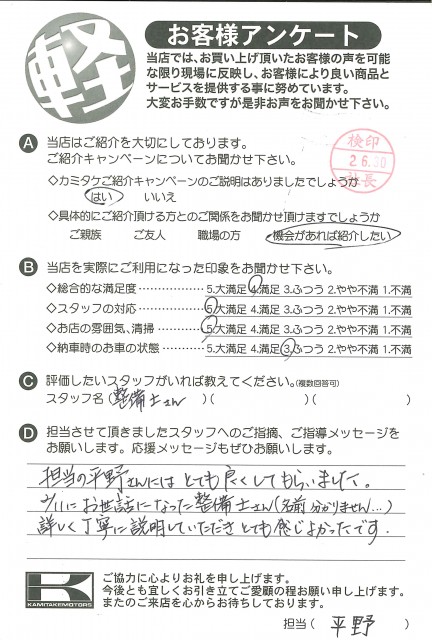 軽
お客様アンケート
当店では、お買い上げ頂いたお客様の声を可能
な限り現場に反映し、お客様により良い商品と
サービスを提供する事に努めています。
大変お手数ですが是非お声をお聞かせ下さい。
A 当店はご紹介を大切にしております。
ご紹介キャンペーンについてお聞かせ下さい。
検印
2.6.30
社長
◇カミタケご紹介キャンペーンのご説明はありましたでしょうか
はい いいえ
◇具体的にご紹介頂ける方とのご関係をお聞かせ頂けますでしょうか
ご親族 ご友人 職場の方 機会があれば紹介したい
B 当店を実際にご利用になった印象をお聞かせ下さい。
◇総合的な満足度……………5.大満足 4.満足 3.ふつう 2.やや不満 1.不満
◇スタッフの対応……………5.大満足 4.満足 3.ふつう 2.やや不満 1.不満
◇お店の雰囲気、清掃………5.大満足 4.満足 3.ふつう 2.やや不満 1.不満
◇納車時のお車の状態………5.大満足 4.満足 3.ふつう 2.やや不満 1.不満
C 評価したいスタッフがいれば教えてください。(複数回答可)
スタッフ名(整備士さん )( )( )
D 担当させて頂きましたスタッフへのご指摘、ご指導メッセージを
お願いします。応援メッセージもぜひお願いします。
担当の平野さんにはとても良くしてもらいました。
お世話になった整備士さん(名前分かりません…)
詳しく丁寧に説明していただきとても感じよかったです。
K
KAMITAKEMOTORS
ご協力に心よりお礼を申し上げます。
今後とも宜しくお引き立てご愛顧の程お願い申し上げます。
またのご来店を心からお待ちしております。
担当( 平野 )